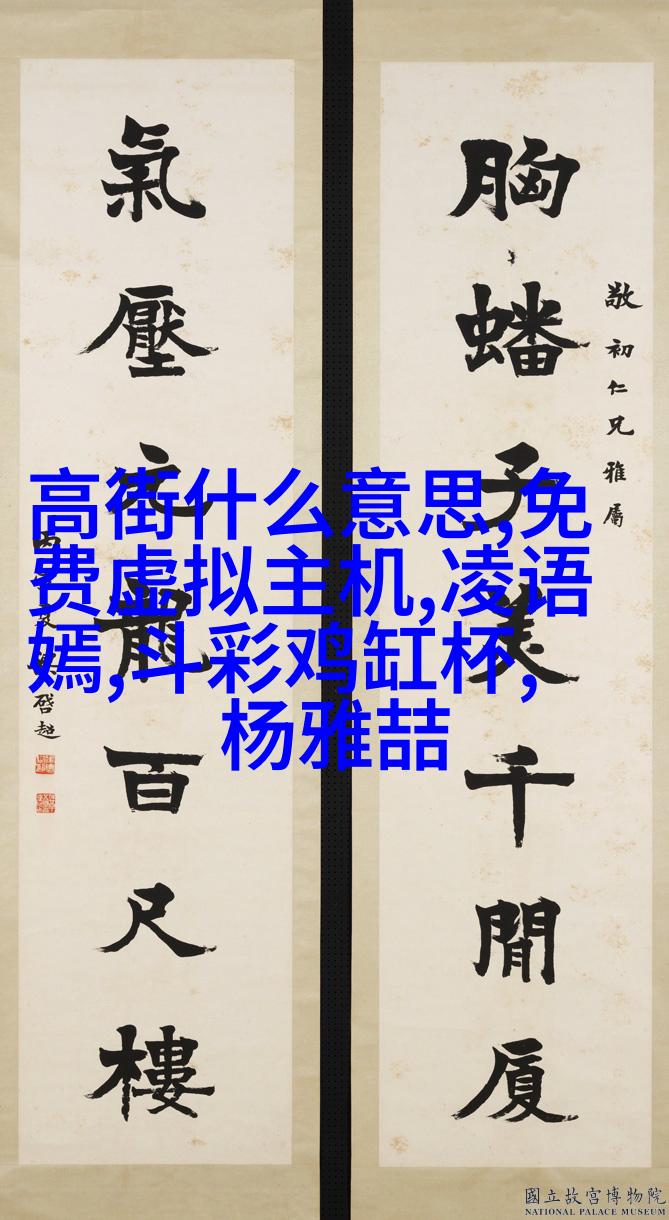 胸蟠子美千間厦
敬初仁兄雅屬
氣壓元龍百尺樓
啓超
高街什么意思,免
费虚拟主机,凌语
嫣,斗彩鸡缸杯,
杨雅喆
國立故宮博物院
NATIONAL PALACE MUSEUM